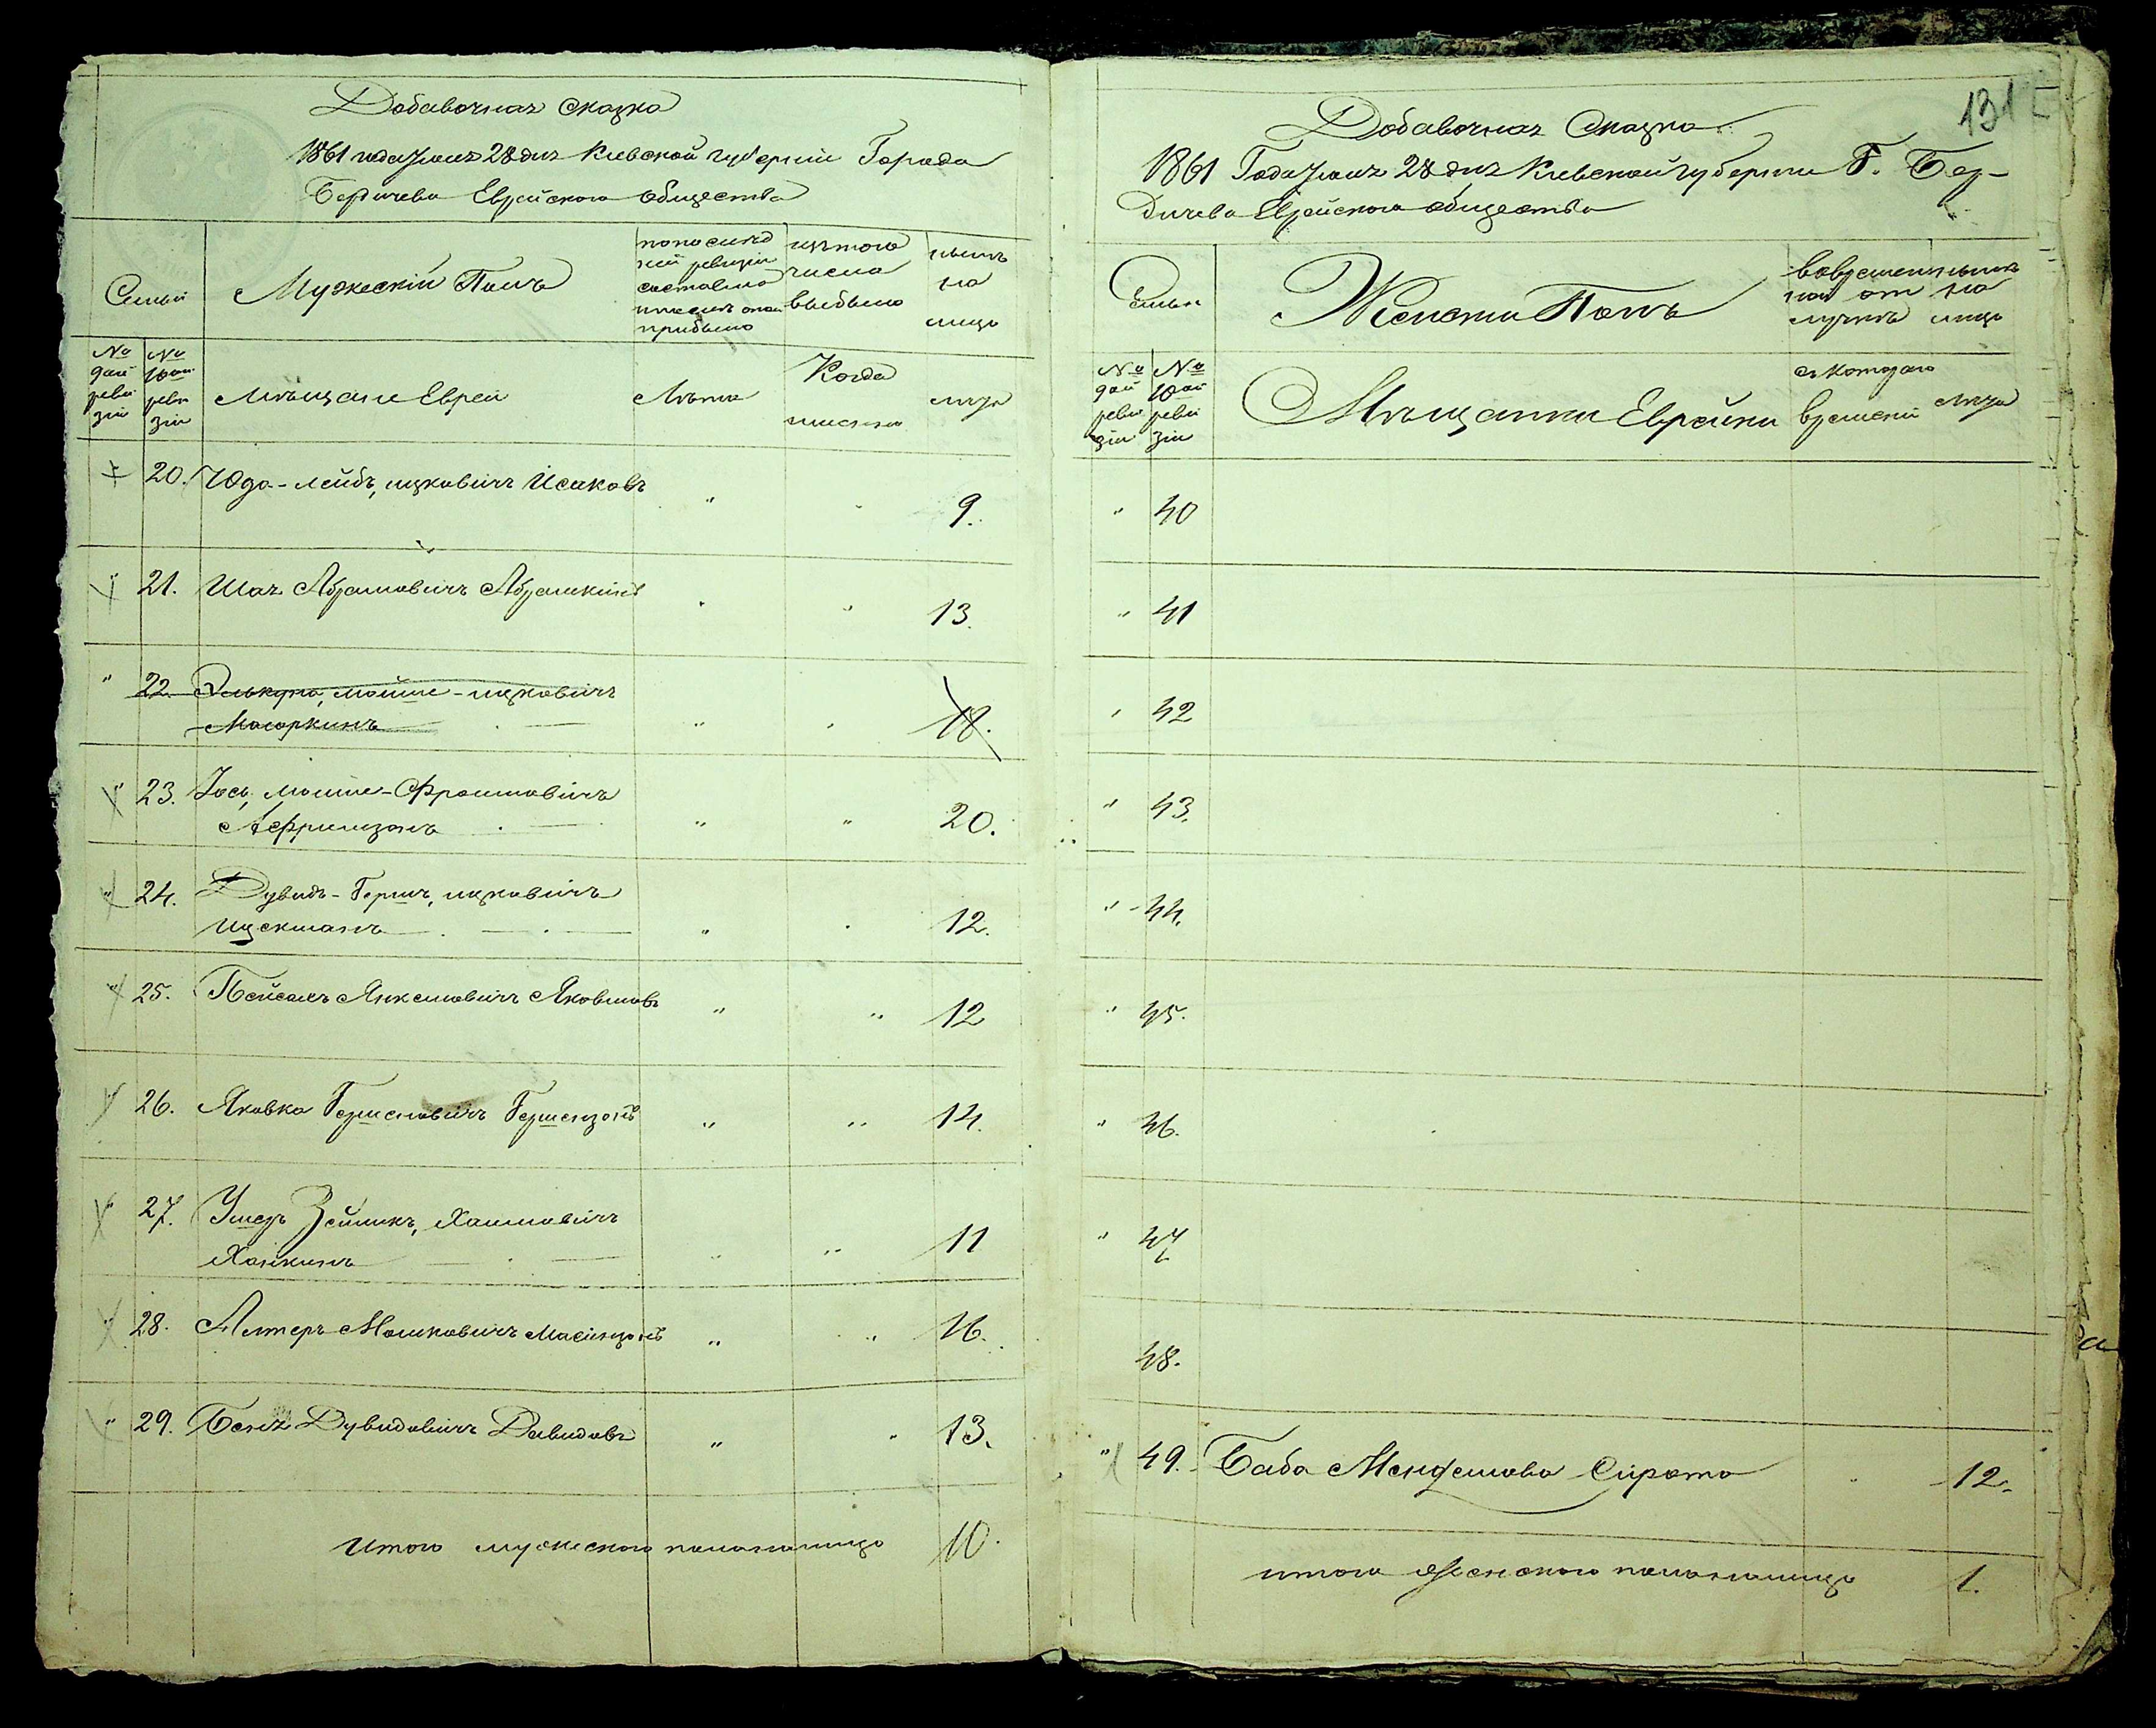 Добавочная сказка
1861 года Июня 28 дня Киевской губерніи Города
Бердичева Еврейского общества
Семьи
Мужескій Полъ
по послед
ней ревизіи
состояло
и после оной
прибыло
изъ того
числа
выбыло
ныне
на
лицо
№
9ой
реви
зіи
№
10ой
реви
зіи
Мѣщане Евреи
Лѣта
Когда
именно
лѣта
20. Юда-лейбъ, ицковичъ Исаковъ " " 9.
" 21. Шая Абрамовичъ Абрамкинъ " " 13.
" 22. мойше-ицковичъ
" " 18.
" 23. Іось, мойше-Фроимовичъ
" " 20.
" 24. Дувидъ-Гершъ, ицковичъ
Ицекманъ " " 12.
" 25. Пейсахъ Янкелювичъ Яковлевъ " " 12
" 26. Яковка Гершковичъ Гершензонъ " " 14.
" 27. Ушеръ Зейликъ, Хаимовичъ
Хаикинъ " " 11
" 28. Алтеръ Мошковичъ " " 16.
" 29. Беня Дувидовичъ Давидовъ " " 13.
Итого мужеского пола налицо 10.
131
Добавочная Сказка
1861 Года Июня 28 дня Киевской губерніи Г. Бер-
дичева Еврейского общества
Семьи
Женски Полъ
во времен
ной от
лучкѣ
ныне
на
лицо
№
9ой
реви
зіи
№
10ой
реви
зіи
Мѣщанки Еврейки
съ котораго
времени
лѣта
" 40
" 41
" 42
" 43.
" 44.
" 45.
" 46.
" 47
48.
" 49. Баба Менделева Сирота " 12.
итого женского пола налицо 1.